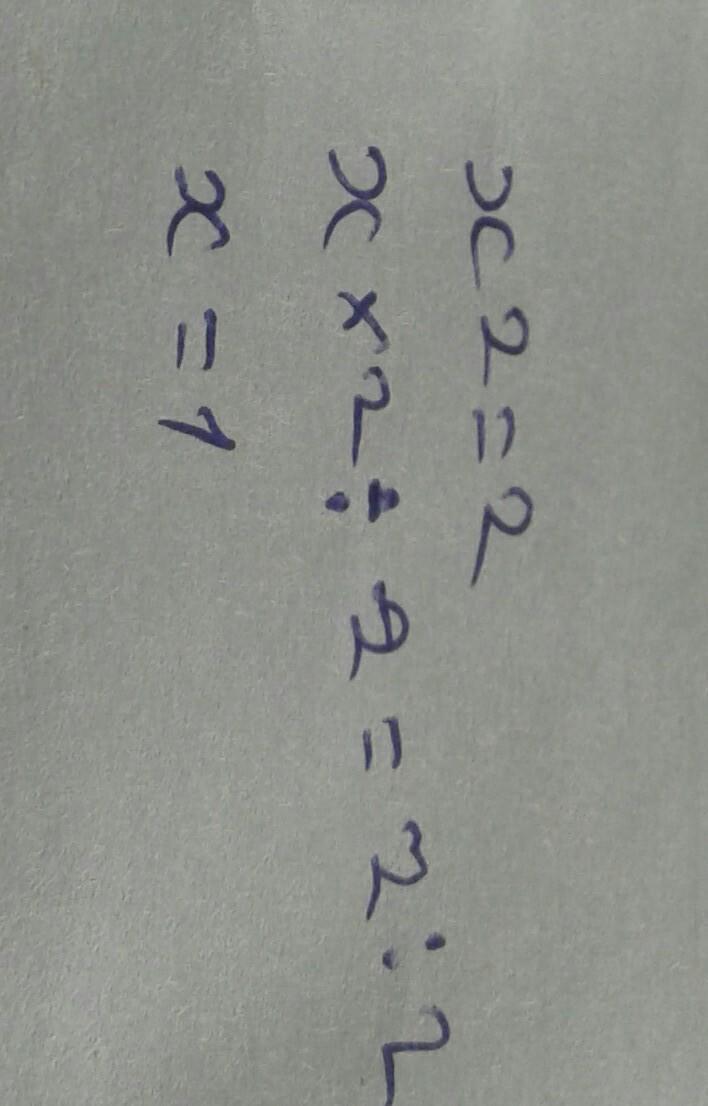 x2=2
x×2÷2=2:2
x=1